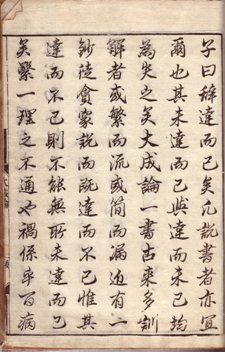 子曰辞達而已矣凡説書者亦宜
爾也其未達而已與達而未已均
為失之矣大成論一書古來多訓
解者或繁而流或簡而漏近有一
鈔徒貪衆説而既達而不已惟其
達而不已則不能無所未達而已
矣繄一理之不通也禍係乎百病